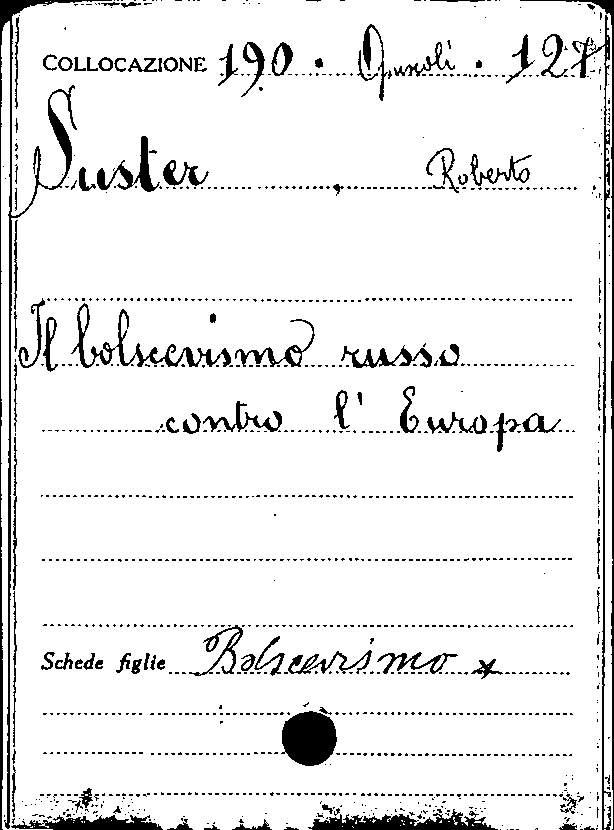 COLLOCAZIONE 190 · Opuscoli · 127
Suster, Roberto
Il bolscevismo russo
contro l' Europa
Schede figlie Bolscevismo x